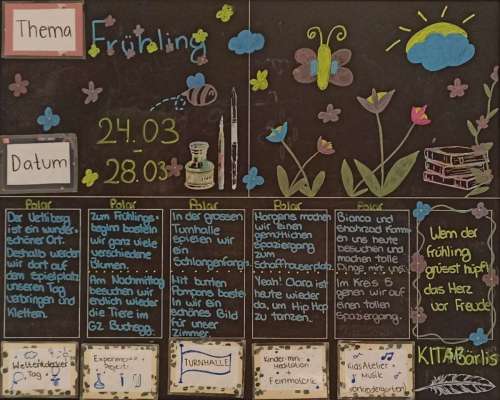 Thema
Frühling
24.03
-
28.03
Datum
Polar
Der Uetliberg
ist ein wunder-
schöner Ort.
Deshalb werden
wir dort auf
dem Spielplatz
unseren Tag
verbringen und
Klettern.
Polar
Zum Frühlings-
beginn basteln
wir ganz viele
verschiedene
Blumen.
Am Nachmittag
besuchen wir
endlich wieder
die Tiere im
Gz Buchegg.
Polar
In der grossen
Turnhalle
spielen wir
ein
Schlangenfangis.
Mit bunten
Pompons basteln
In wir ein
schönes Bild
für unser
Zimmer
Polar
Morgens machen
wir einen
gemütlichen
Spaziergang
zum
Schaffhauserplatz.
Yeah! Oara ist
heute wieder
da, um Hip Hop
zu tanzen.
Polar
Bianca und
kommen
uns heute
besuchen und
machen tolle
Dinge mit uns.
Im Kreis 5
gehen wir auf
einen tollen
Spaziergang.
Wenn der
frühling
grüsst hüpft
das Herz
vor Freude
KITABärlis
Weltentdecker
Tag
Experimente
Projekt
TURNHALLE
Kinder mini
Meditation
+
Feinmotorik
Kids Atelier
Musik
Vorkindergarten